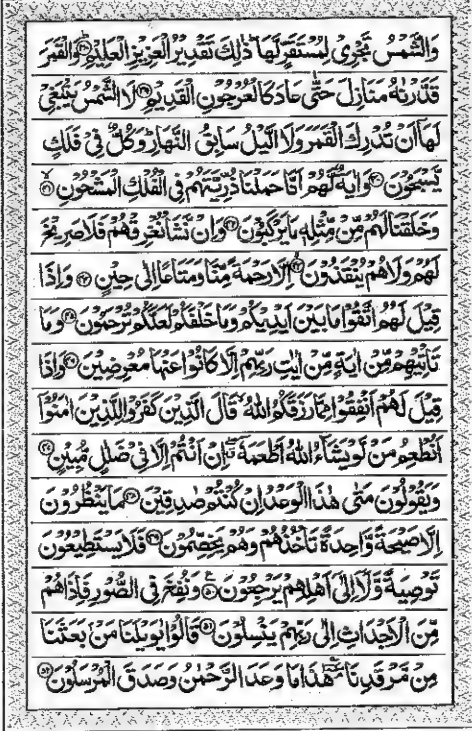 وَالشَّمْسُ تَجْرِىْ لِمُسْتَقَرٍّ لَّهَا ؕ ذٰلِكَ تَقْدِيْرُ الْعَزِيْزِ الْعَلِيْمِ ﴿۳۸﴾ وَالْقَمَرَ
قَدَّرْنٰهُ مَنَازِلَ حَتّٰى عَادَ كَالْعُرْجُوْنِ الْقَدِيْمِ ﴿۳۹﴾ لَا الشَّمْسُ يَنْۢبَغِىْ
لَهَاۤ اَنْ تُدْرِكَ الْقَمَرَ وَلَا الَّيْلُ سَابِقُ النَّهَارِ ؕ وَكُلٌّ فِىْ فَلَكٍ
يَّسْبَحُوْنَ ﴿۴۰﴾ وَاٰيَةٌ لَّهُمْ اَنَّا حَمَلْنَا ذُرِّيَّتَهُمْ فِى الْفُلْكِ الْمَشْحُوْنِ ﴿۴۱﴾
وَخَلَقْنَا لَهُمْ مِّنْ مِّثْلِهٖ مَا يَرْكَبُوْنَ ﴿۴۲﴾ وَاِنْ نَّشَاْ نُغْرِقْهُمْ فَلَا صَرِيْخَ
لَهُمْ وَلَا هُمْ يُنْقَذُوْنَ ﴿۴۳﴾ اِلَّا رَحْمَةً مِّنَّا وَمَتَاعًا اِلٰى حِيْنٍ ﴿۴۴﴾ وَاِذَا
قِيْلَ لَهُمُ اتَّقُوْا مَا بَيْنَ اَيْدِيْكُمْ وَمَا خَلْفَكُمْ لَعَلَّكُمْ تُرْحَمُوْنَ ﴿۴۵﴾ وَمَا
تَاْتِيْهِمْ مِّنْ اٰيَةٍ مِّنْ اٰيٰتِ رَبِّهِمْ اِلَّا كَانُوْا عَنْهَا مُعْرِضِيْنَ ﴿۴۶﴾ وَاِذَا
قِيْلَ لَهُمْ اَنْفِقُوْا مِمَّا رَزَقَكُمُ اللّٰهُ ۙ قَالَ الَّذِيْنَ كَفَرُوْا لِلَّذِيْنَ اٰمَنُوْۤا
اَنُطْعِمُ مَنْ لَّوْ يَشَآءُ اللّٰهُ اَطْعَمَهٗۤ ۖ اِنْ اَنْتُمْ اِلَّا فِىْ ضَلٰلٍ مُّبِيْنٍ ﴿۴۷﴾
وَيَقُوْلُوْنَ مَتٰى هٰذَا الْوَعْدُ اِنْ كُنْتُمْ صٰدِقِيْنَ ﴿۴۸﴾ مَا يَنْظُرُوْنَ
اِلَّا صَيْحَةً وَّاحِدَةً تَاْخُذُهُمْ وَهُمْ يَخِصِّمُوْنَ ﴿۴۹﴾ فَلَا يَسْتَطِيْعُوْنَ
تَوْصِيَةً وَّلَاۤ اِلٰٓى اَهْلِهِمْ يَرْجِعُوْنَ ﴿۵۰﴾ وَنُفِخَ فِى الصُّوْرِ فَاِذَا هُمْ
مِّنَ الْاَجْدَاثِ اِلٰى رَبِّهِمْ يَنْسِلُوْنَ ﴿۵۱﴾ قَالُوْا يٰوَيْلَنَا مَنْۢ بَعَثَنَا
مِنْ مَّرْقَدِنَا ۘ هٰذَا مَا وَعَدَ الرَّحْمٰنُ وَصَدَقَ الْمُرْسَلُوْنَ ﴿۵۲﴾